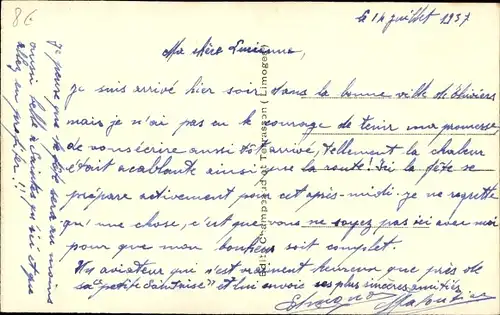 86
le 14 juillet 1937
Ma chère Lucienne,
Je suis arrivé hier soir dans la bonne ville de
mais je n'ai pas eu le courage de tenir ma promesse
de vous écrire aussitôt arrivé, tellement la chaleur
était accablante ainsi que la route! Ici la fête se
prépare activement pour cet après-midi. je ne regrette
qu'une chose, c'est que vous ne soyez pas ici avec moi
pour que mon bonheur soit complet.
Un aviateur qui n'est vraiment heureux que près de
sa "petite Saintaise" et lui envoie ses plus sincères amitiés
je pense que la fête sera au moins
aussi belle à Saintes qu'ici et que
allez en profiter!!!